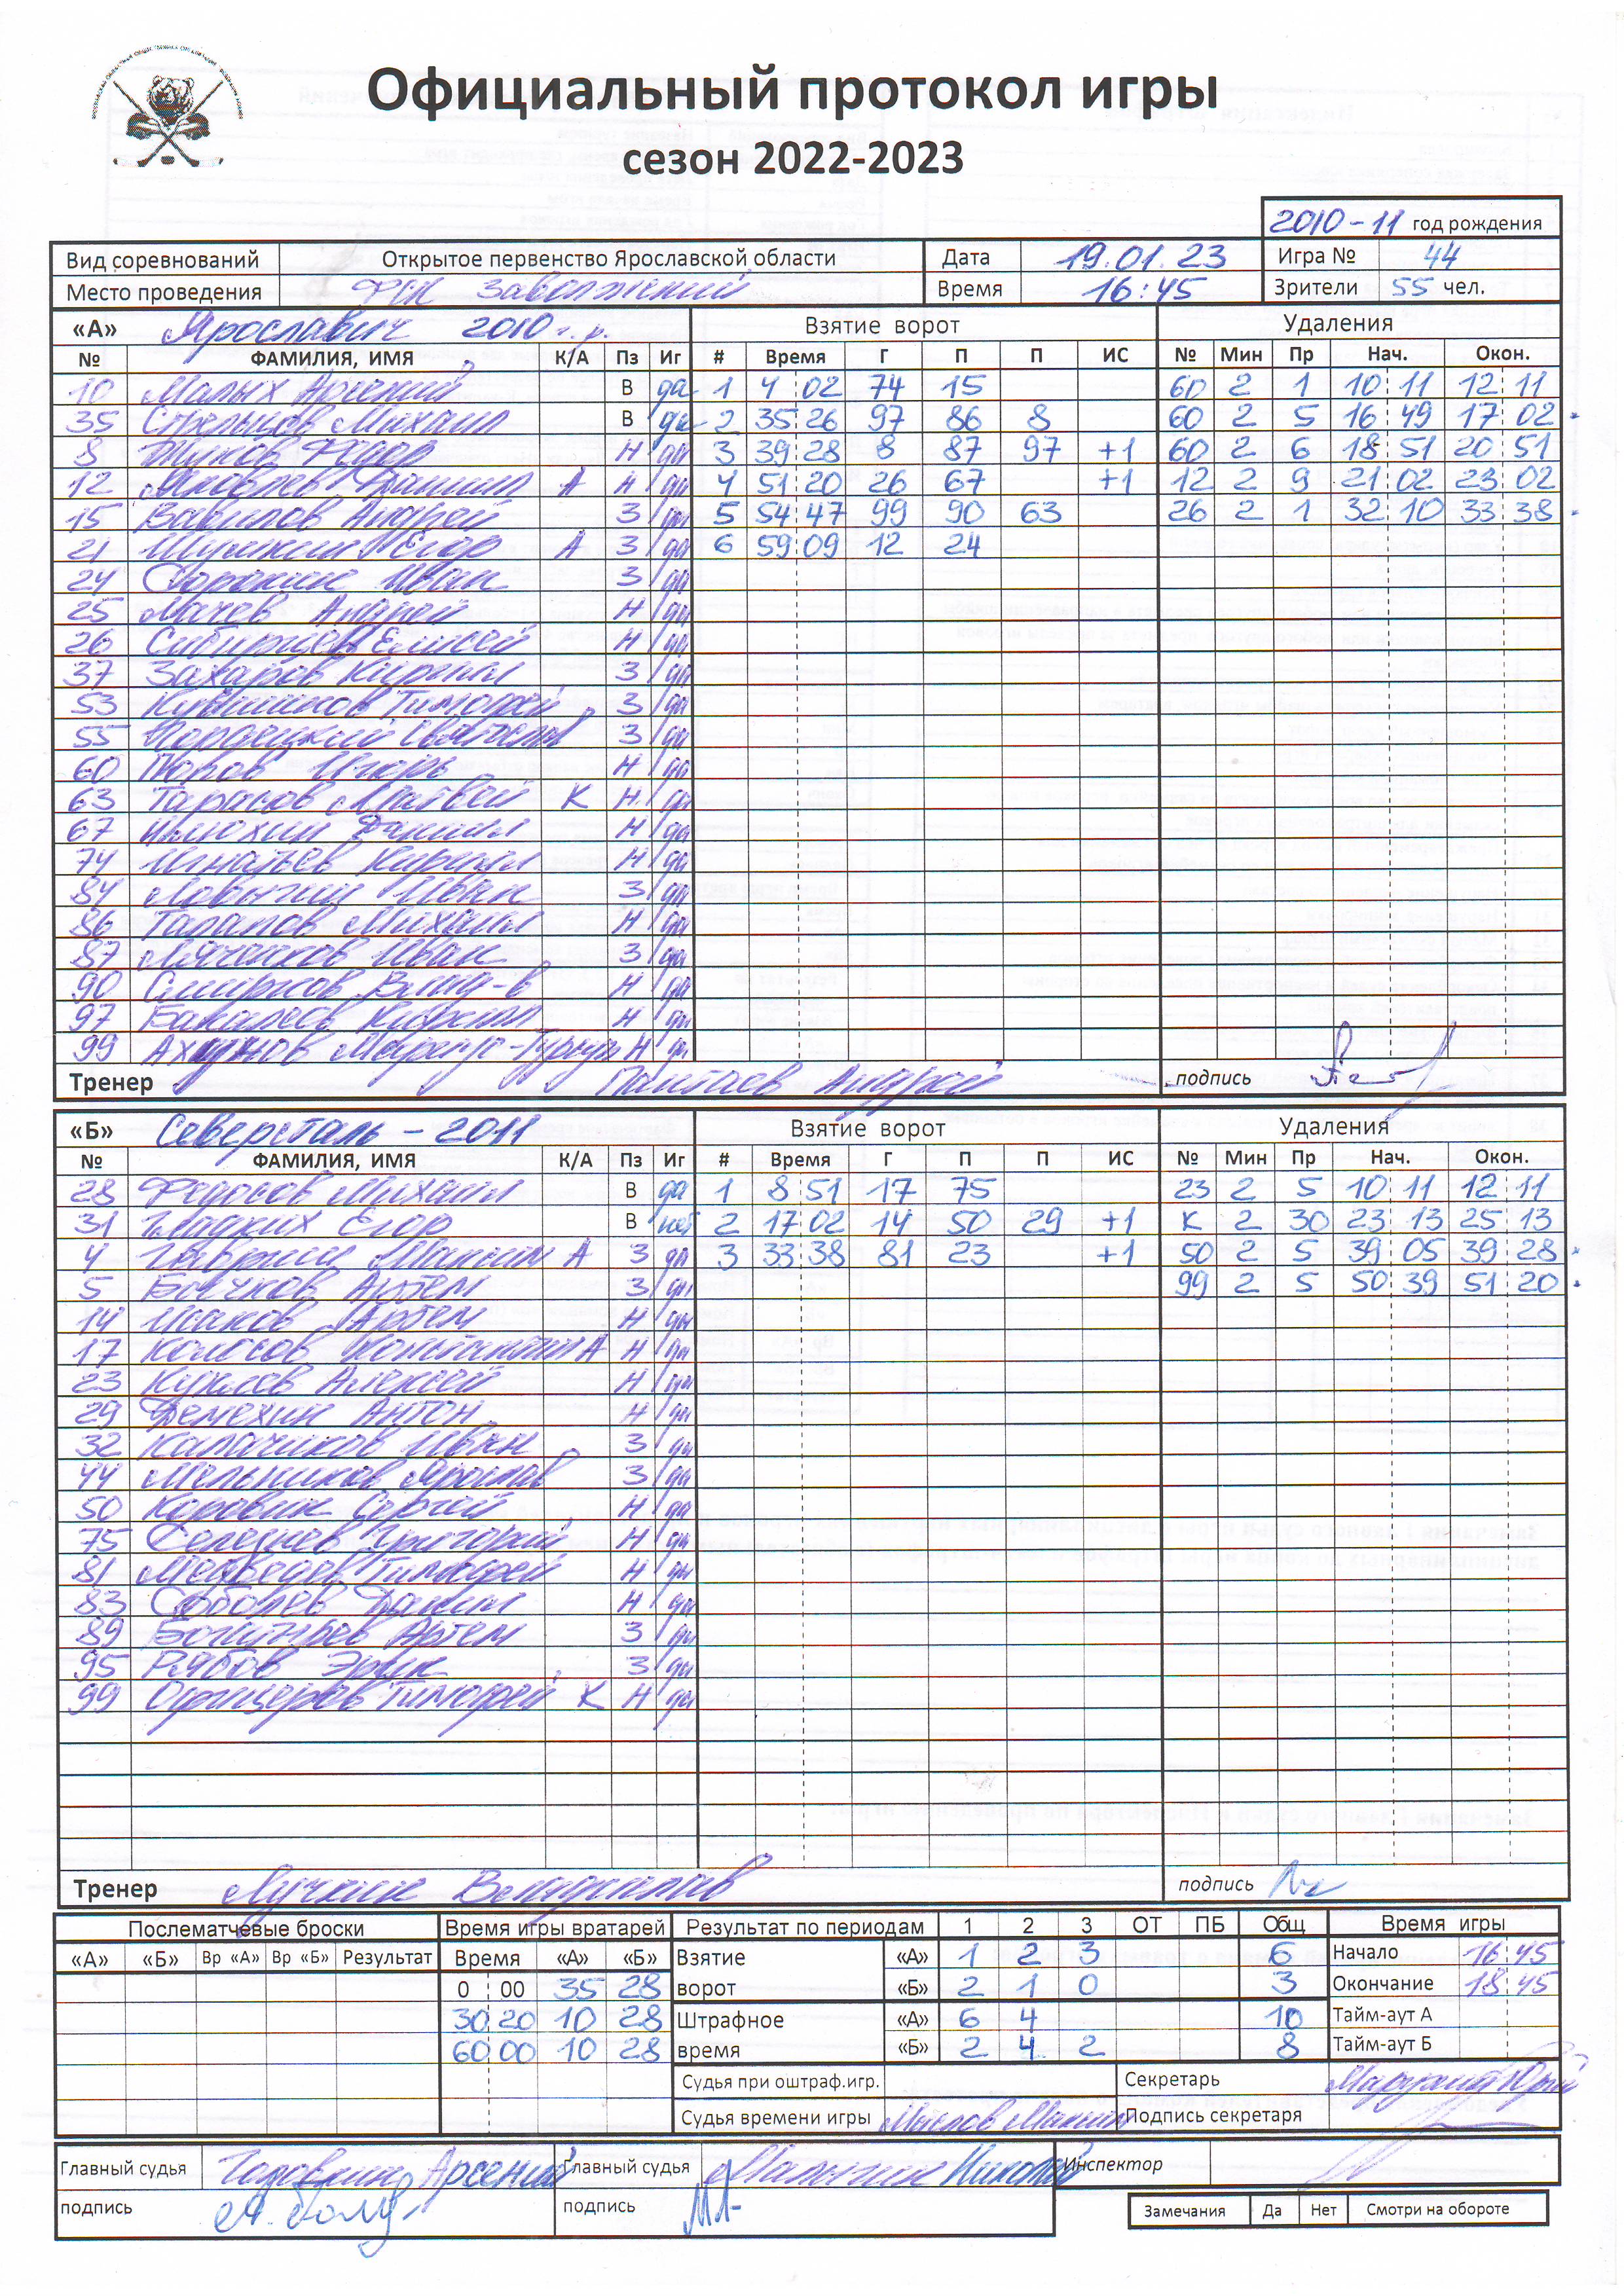 Официальный протокол игры
сезон 2022-2023
2010-11 год рождения
Вид соревнований Открытое первенство Ярославской области Дата 19.01.23 Игра № 44
Место проведения ФСК Заволжский Время 16:45 Зрители 55 чел.
«А» Ярославич 2010 г.р. Взятие ворот Удаления
№ ФАМИЛИЯ, ИМЯ К/А Пз Иг # Время Г П П ИС № Мин Пр Нач. Окон.
10 Малых Арсений В да 1 4 02 74 15 60 2 1 10 11 12 11
35 Стрельцов Михаил В да 2 35 26 97 86 8 60 2 5 16 49 17 02
8 Жуков Фёдор Н да 3 39 28 8 87 97 +1 60 2 6 18 51 20 51
12 Яковлев Даниил А Н да 4 51 20 26 67 +1 12 2 9 21 02 23 02
15 Вавилов Андрей З да 5 54 47 99 90 63 26 2 1 32 10 33 38
21 Егор А З да 6 59 09 12 24
24 Сорокин Иван З да
25 Махов Андрей Н да
26 Сибирцев Елисей Н да
37 Захаров Кирилл З да
53 Тимофей З да
55 З да
60 Игорь Н да
63 Тарасов Матвей К Н да
67 Илюхин Даниил Н да
74 Игнатьев Кирилл Н да
84 Ловыгин Иван З да
86 Талапов Михаил Н да
87 Лячиков Иван З да
90 Смирнов Влад-в Н да
97 Бакалеев Кирилл Н да
99 Н да
Тренер Андрей подпись
«Б» Северсталь - 2011 Взятие ворот Удаления
№ ФАМИЛИЯ, ИМЯ К/А Пз Иг # Время Г П П ИС № Мин Пр Нач. Окон.
28 Федосов Михаил В да 1 8 51 17 75 23 2 5 10 11 12 11
31 Гладких Егор В нет 2 17 02 14 50 29 +1 К 2 30 23 13 25 13
4 Гаврилин Максим А З да 3 33 38 81 23 +1 50 2 5 39 05 39 28
5 Бычков Артем З да 99 2 5 50 39 51 20
14 Исаков Артем Н да
17 Колосов Константин А Н да
23 Куклев Алексей Н да
29 Демехин Антон Н да
32 Калачиков Иван З да
44 Мельников Ярослав З да
50 Коровин Сергей Н да
75 Селезнев Григорий Н да
81 Медведев Тимофей Н да
83 Соболев Данил Н да
89 Богатырев Артем З да
95 Рябов Эрик З да
99 Офицеров Тимофей К Н да
Тренер Лучкин Владислав подпись
Послематчевые броски Время игры вратарей Результат по периодам 1 2 3 ОТ ПБ Общ Время игры
«А» «Б» Вр «А» Вр «Б» Результат Время «А» «Б» Взятие «А» 1 2 3 6 Начало 16 45
0 00 35 28 ворот «Б» 2 1 0 3 Окончание 18 45
30 20 10 28 Штрафное «А» 6 4 10 Тайм-аут А
60 00 10 28 время «Б» 2 4 2 8 Тайм-аут Б
Судья при оштраф.игр. Секретарь Юрий
Судья времени игры Маслов Максим Подпись секретаря
Главный судья Головкин Арсений Главный судья Малыгин Николай Инспектор
подпись подпись
Замечания Да Нет Смотри на обороте